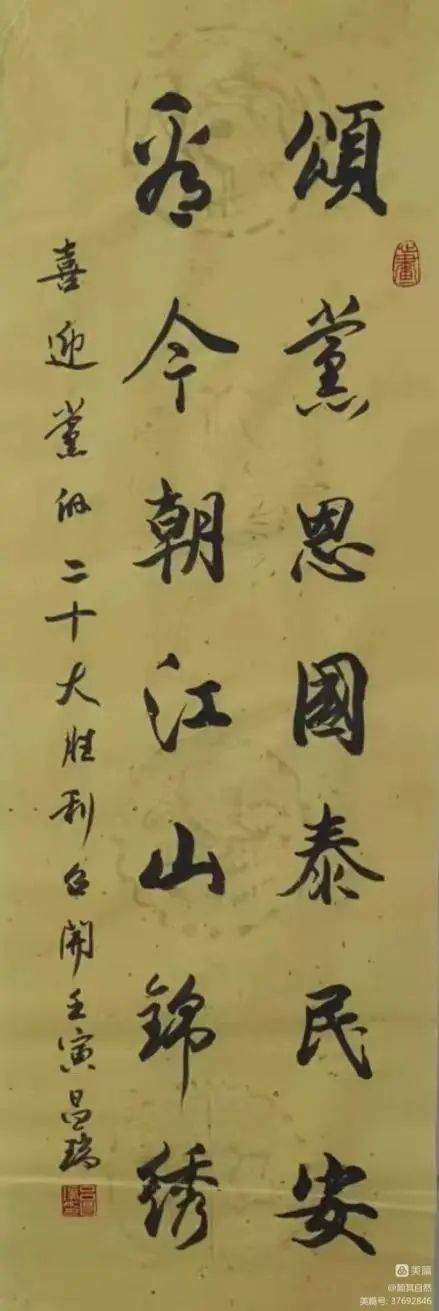 頌黨恩國泰民安
看今朝江山錦綉
喜迎黨的二十大胜利召開壬寅昌瑞
畫
美篇
@顺其自然
美篇号: 37692846